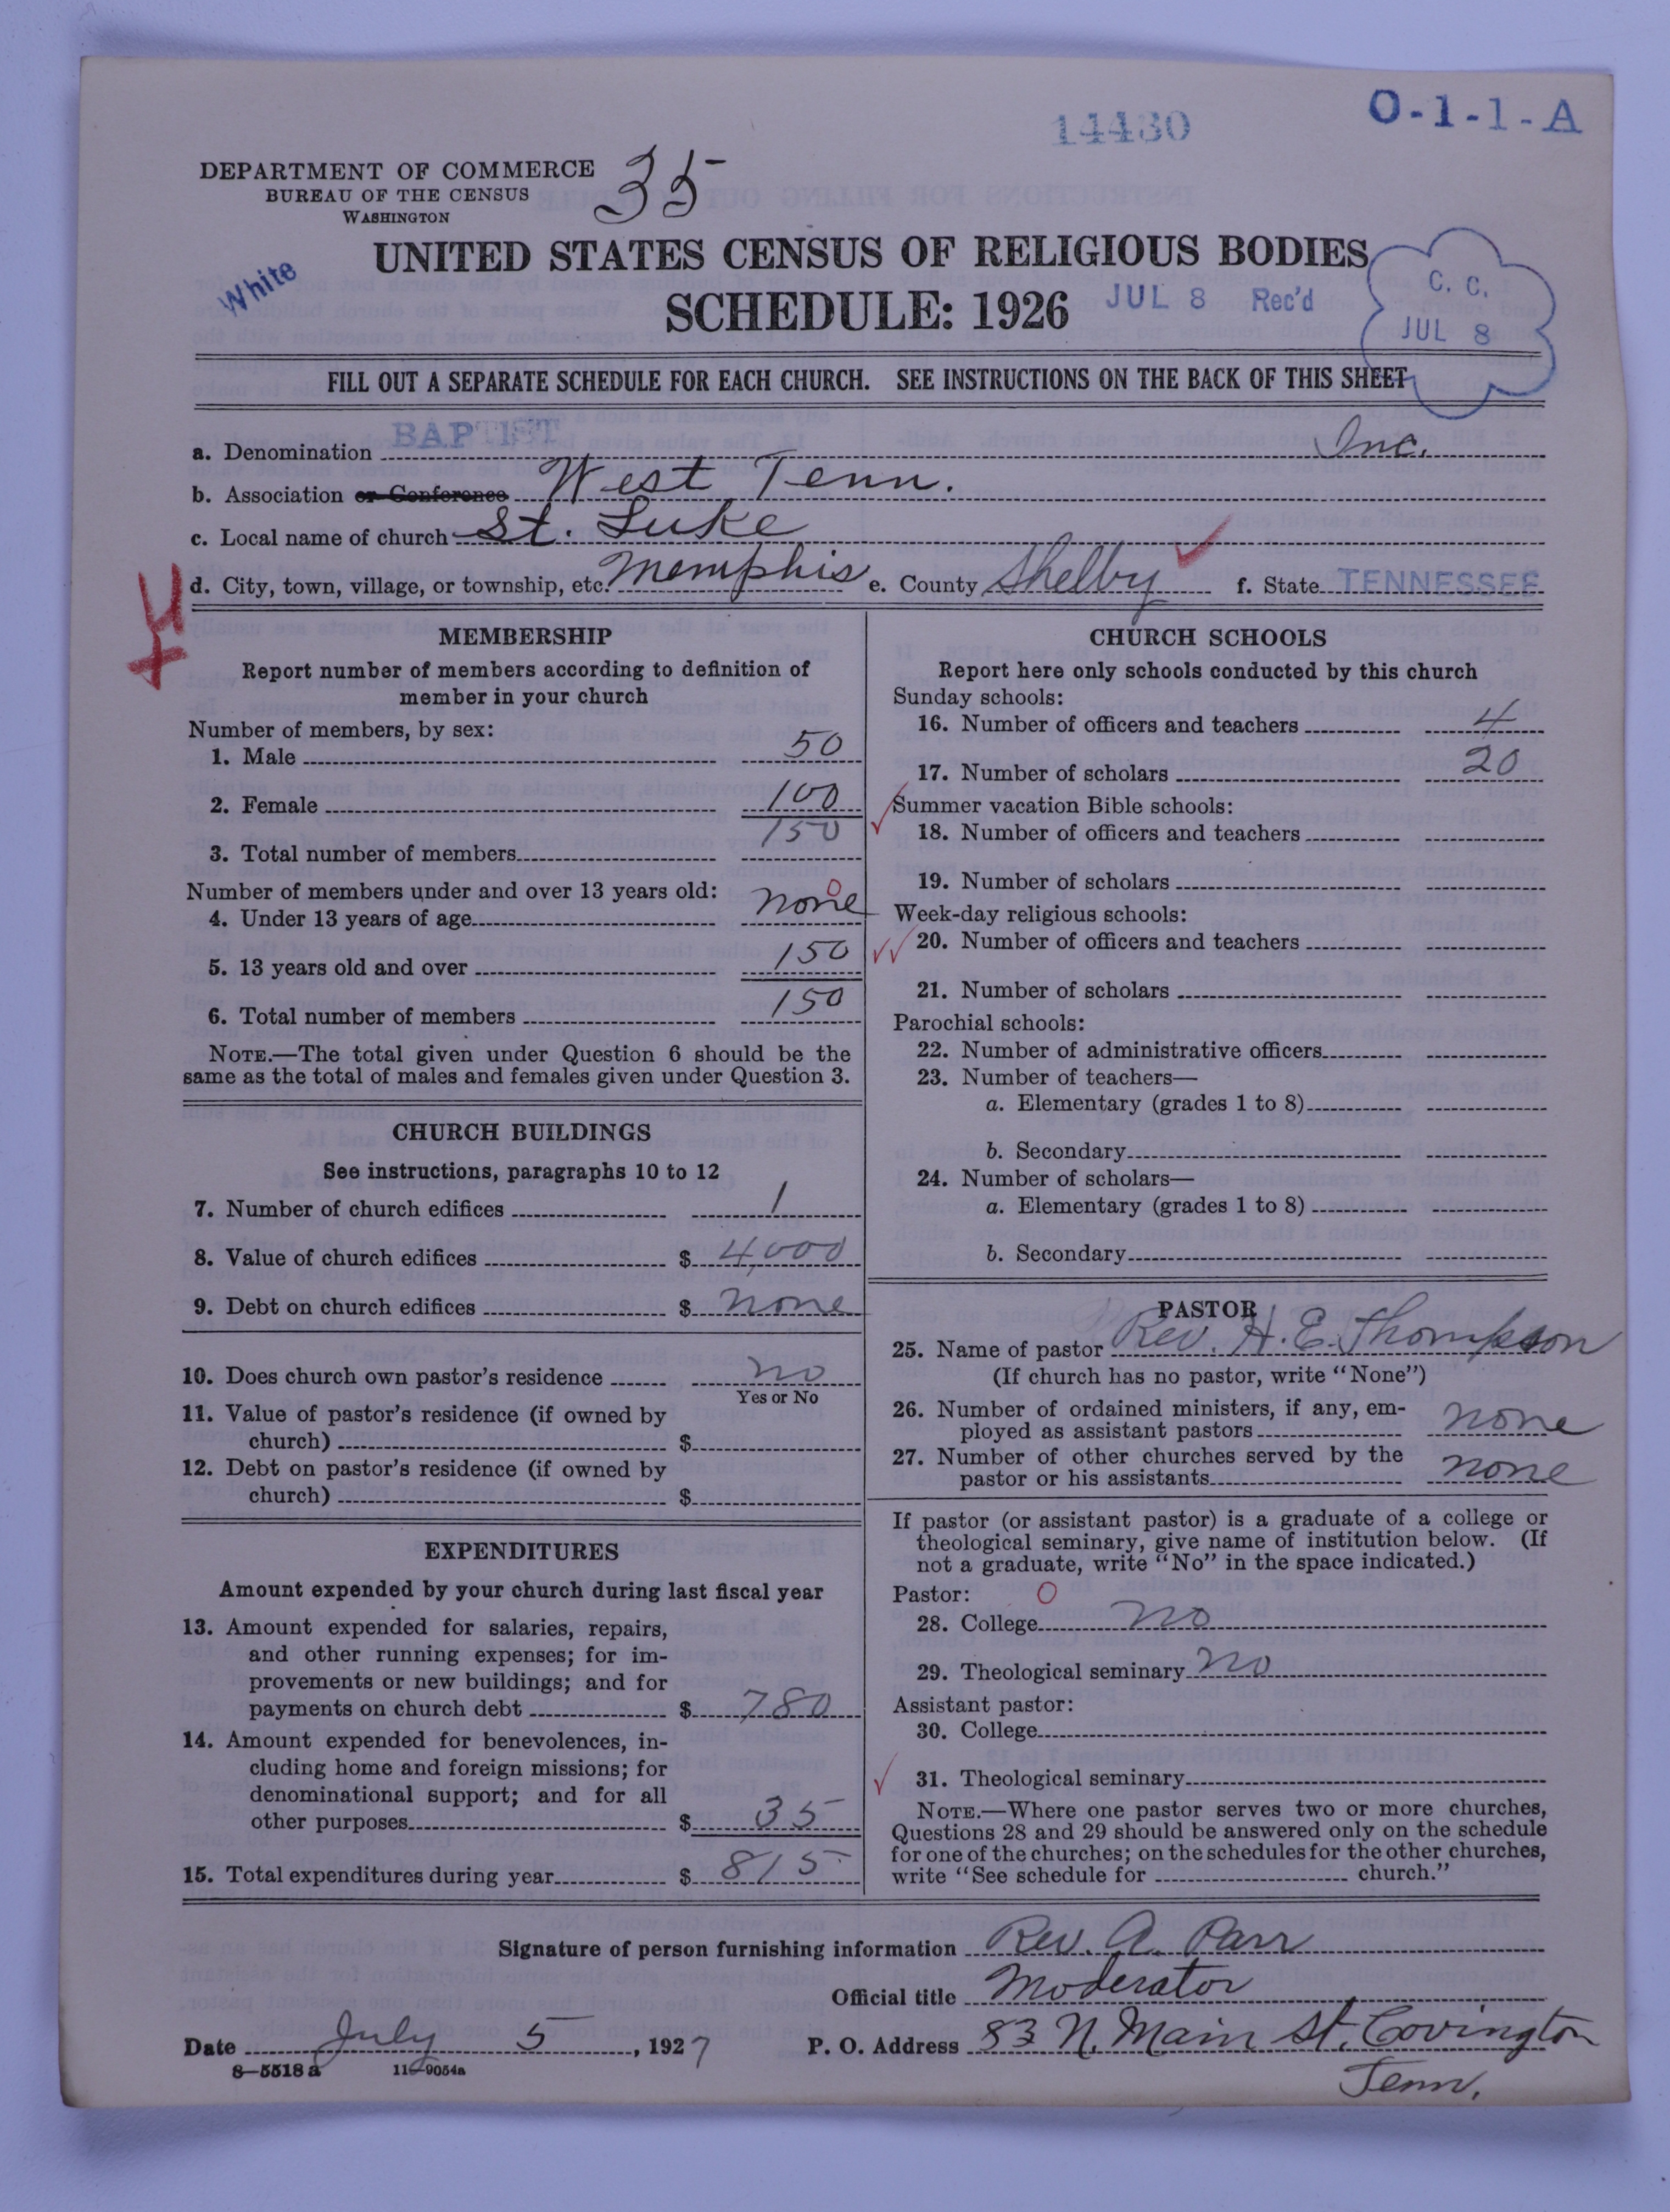 14430
O-1-1-A
DEPARTMENT OF COMMERCE
BUREAU OF THE CENSUS
WASHINGTON
35
White
UNITED STATES CENSUS OF RELIGIOUS BODIES
SCHEDULE: 1926
JUL 8 Rec'd
C. C.
JUL 8
FILL OUT A SEPARATE SCHEDULE FOR EACH CHURCH. SEE INSTRUCTIONS ON THE BACK OF THIS SHEET
a. Denomination BAPTIST Inc.
b. Association or Conference West Tenn.
c. Local name of church St. Luke
d. City, town, village, or township, etc. Memphis e. County Shelby f. State TENNESSEE
MEMBERSHIP
Report number of members according to definition of
member in your church
Number of members, by sex:
1. Male 50
2. Female 100
3. Total number of members 150
Number of members under and over 13 years old:
4. Under 13 years of age none 0
5. 13 years old and over 150
6. Total number of members 150
NOTE.—The total given under Question 6 should be the
same as the total of males and females given under Question 3.
CHURCH BUILDINGS
See instructions, paragraphs 10 to 12
7. Number of church edifices 1
8. Value of church edifices $ 4,000
9. Debt on church edifices $ none
10. Does church own pastor's residence no
Yes or No
11. Value of pastor's residence (if owned by
church) $
12. Debt on pastor's residence (if owned by
church) $
EXPENDITURES
Amount expended by your church during last fiscal year
13. Amount expended for salaries, repairs,
and other running expenses; for im-
provements or new buildings; and for
payments on church debt $ 780
14. Amount expended for benevolences, in-
cluding home and foreign missions; for
denominational support; and for all
other purposes $ 35
15. Total expenditures during year $ 815
CHURCH SCHOOLS
Report here only schools conducted by this church
Sunday schools:
16. Number of officers and teachers 4
17. Number of scholars 20
Summer vacation Bible schools:
18. Number of officers and teachers
19. Number of scholars
Week-day religious schools:
20. Number of officers and teachers
21. Number of scholars
Parochial schools:
22. Number of administrative officers
23. Number of teachers—
a. Elementary (grades 1 to 8)
b. Secondary
24. Number of scholars—
a. Elementary (grades 1 to 8)
b. Secondary
PASTOR
25. Name of pastor Rev. H. E. Thompson
(If church has no pastor, write "None")
26. Number of ordained ministers, if any, em-
ployed as assistant pastors none
27. Number of other churches served by the
pastor or his assistants none
If pastor (or assistant pastor) is a graduate of a college or
theological seminary, give name of institution below. (If
not a graduate, write "No" in the space indicated.)
Pastor: 0
28. College no
29. Theological seminary no
Assistant pastor:
30. College
31. Theological seminary
NOTE.—Where one pastor serves two or more churches,
Questions 28 and 29 should be answered only on the schedule
for one of the churches; on the schedules for the other churches,
write "See schedule for church."
Signature of person furnishing information Rev. A. Parr
Official title Moderator
Date July 5, 1927 P. O. Address 83 N. Main St. Covington
Tenn.
8—5518 a 11—9054a